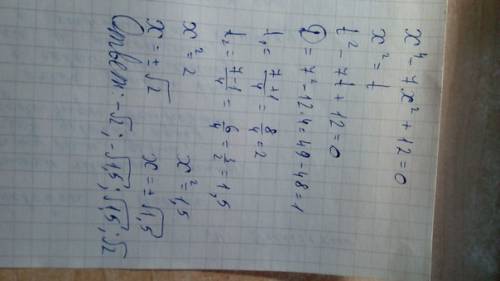 x⁴ - 7x² + 12 = 0
x² = t
t² - 7t + 12 = 0
D = 7² - 12·4 = 49 - 48 = 1
t₁ = (7+1)/4 = 8/4 = 2
t₂ = (7-1)/4 = 6/4 = 3/2 = 1,5
x² = 2 x² = 1,5
x = ±√2 x = ±√1,5
Ответ: -√2; -√1,5; √1,5; √2